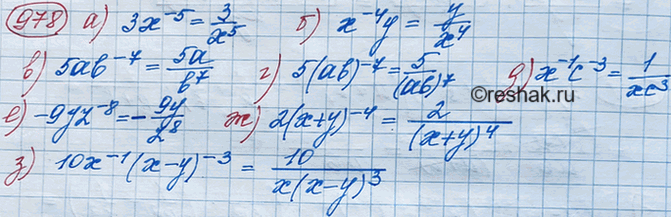 978 а) 3x⁻⁵ = 3/x⁵ б) x⁻⁴y = y/x⁴
в) 5ab⁻⁷ = 5a/b⁷ г) 5(ab)⁻⁷ = 5/(ab)⁷ д) x⁻¹c⁻³ = 1/xc³
©reshak.ru
е) -9yz⁻⁸ = -9y/z⁸ ж) 2(x+y)⁻⁴ = 2/(x+y)⁴
з) 10x⁻¹(x-y)⁻³ = 10/x(x-y)³